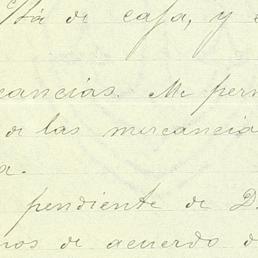 de casa, y
cancias. Me per
de las mercancia
a.
pendiente de D.
nos de acuerdo d